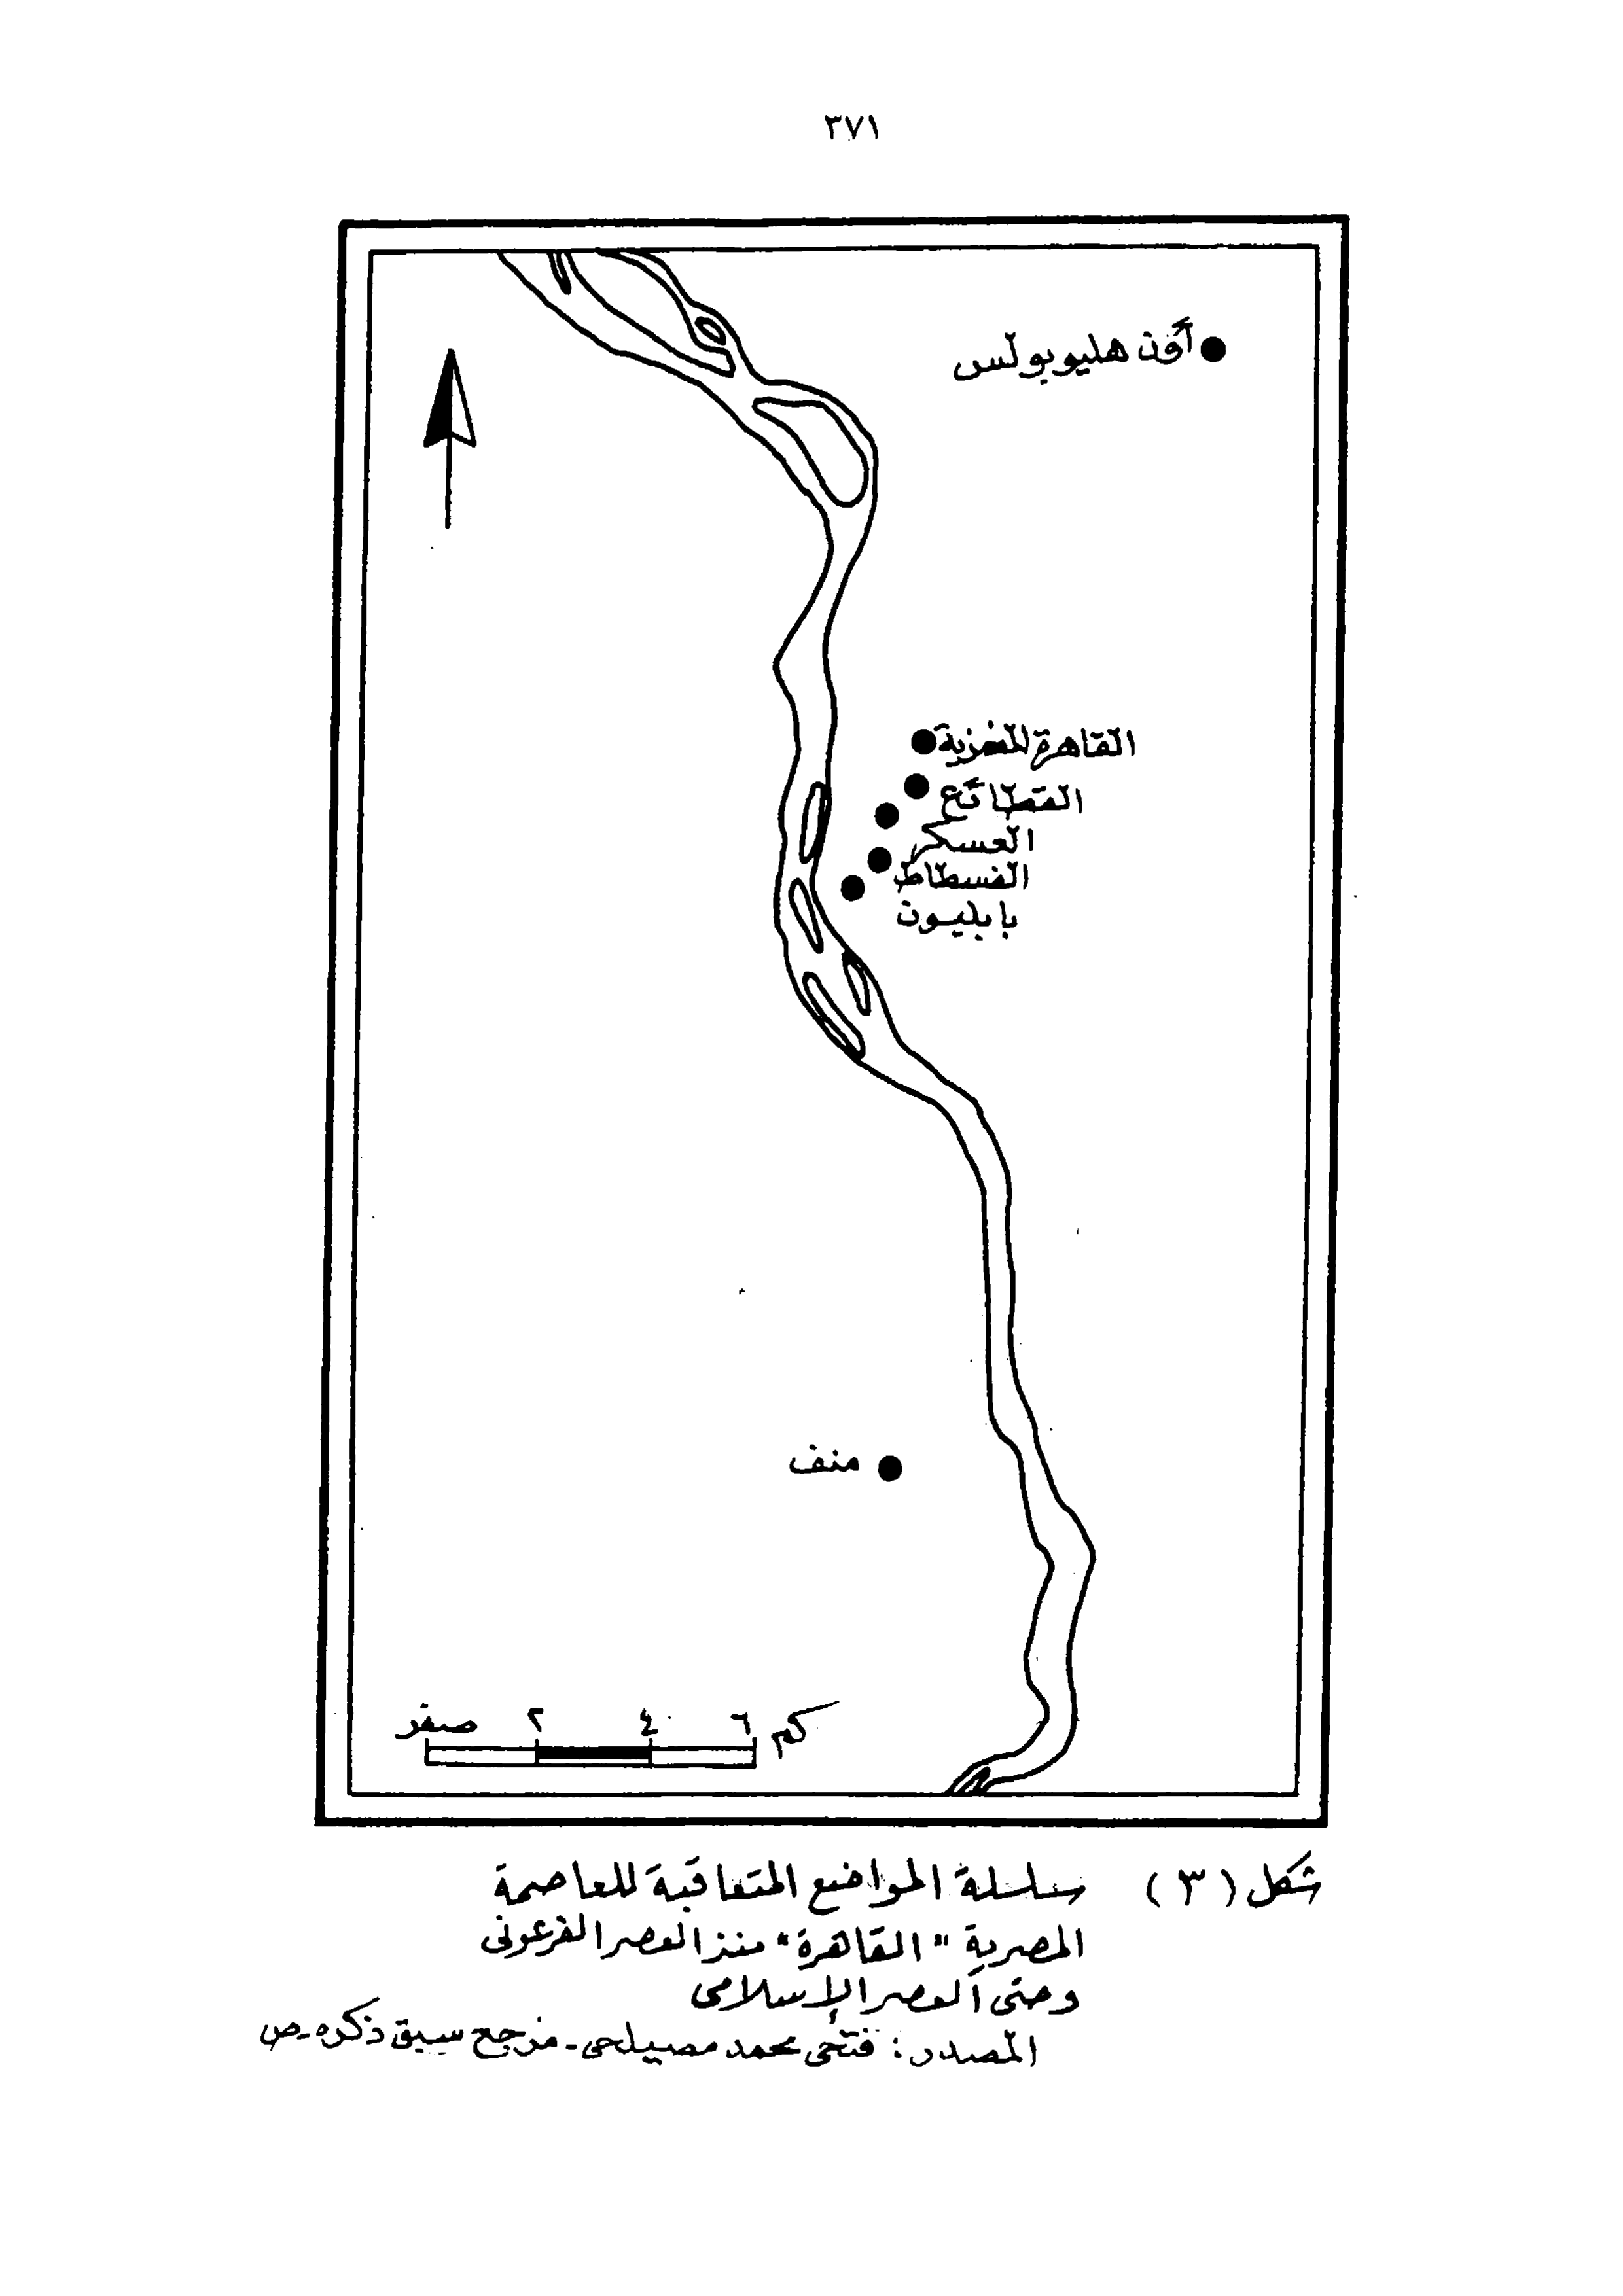 ٣٧١
أون هليوبولس
القاهرة المعزية
القطائع
العسكر
الفسطاط
بابليون
منف
صفر ٢ ٤ ٦ كم
شكل (٣) سلسلة المواضع المتعاقبة للعاصمة
المصرية "القاهرة" منذ العصر الفرعونى
وحتى العصر الإسلامى
المصدر: فتحى محمد مصيلحى - مرجع سبق ذكره - ص